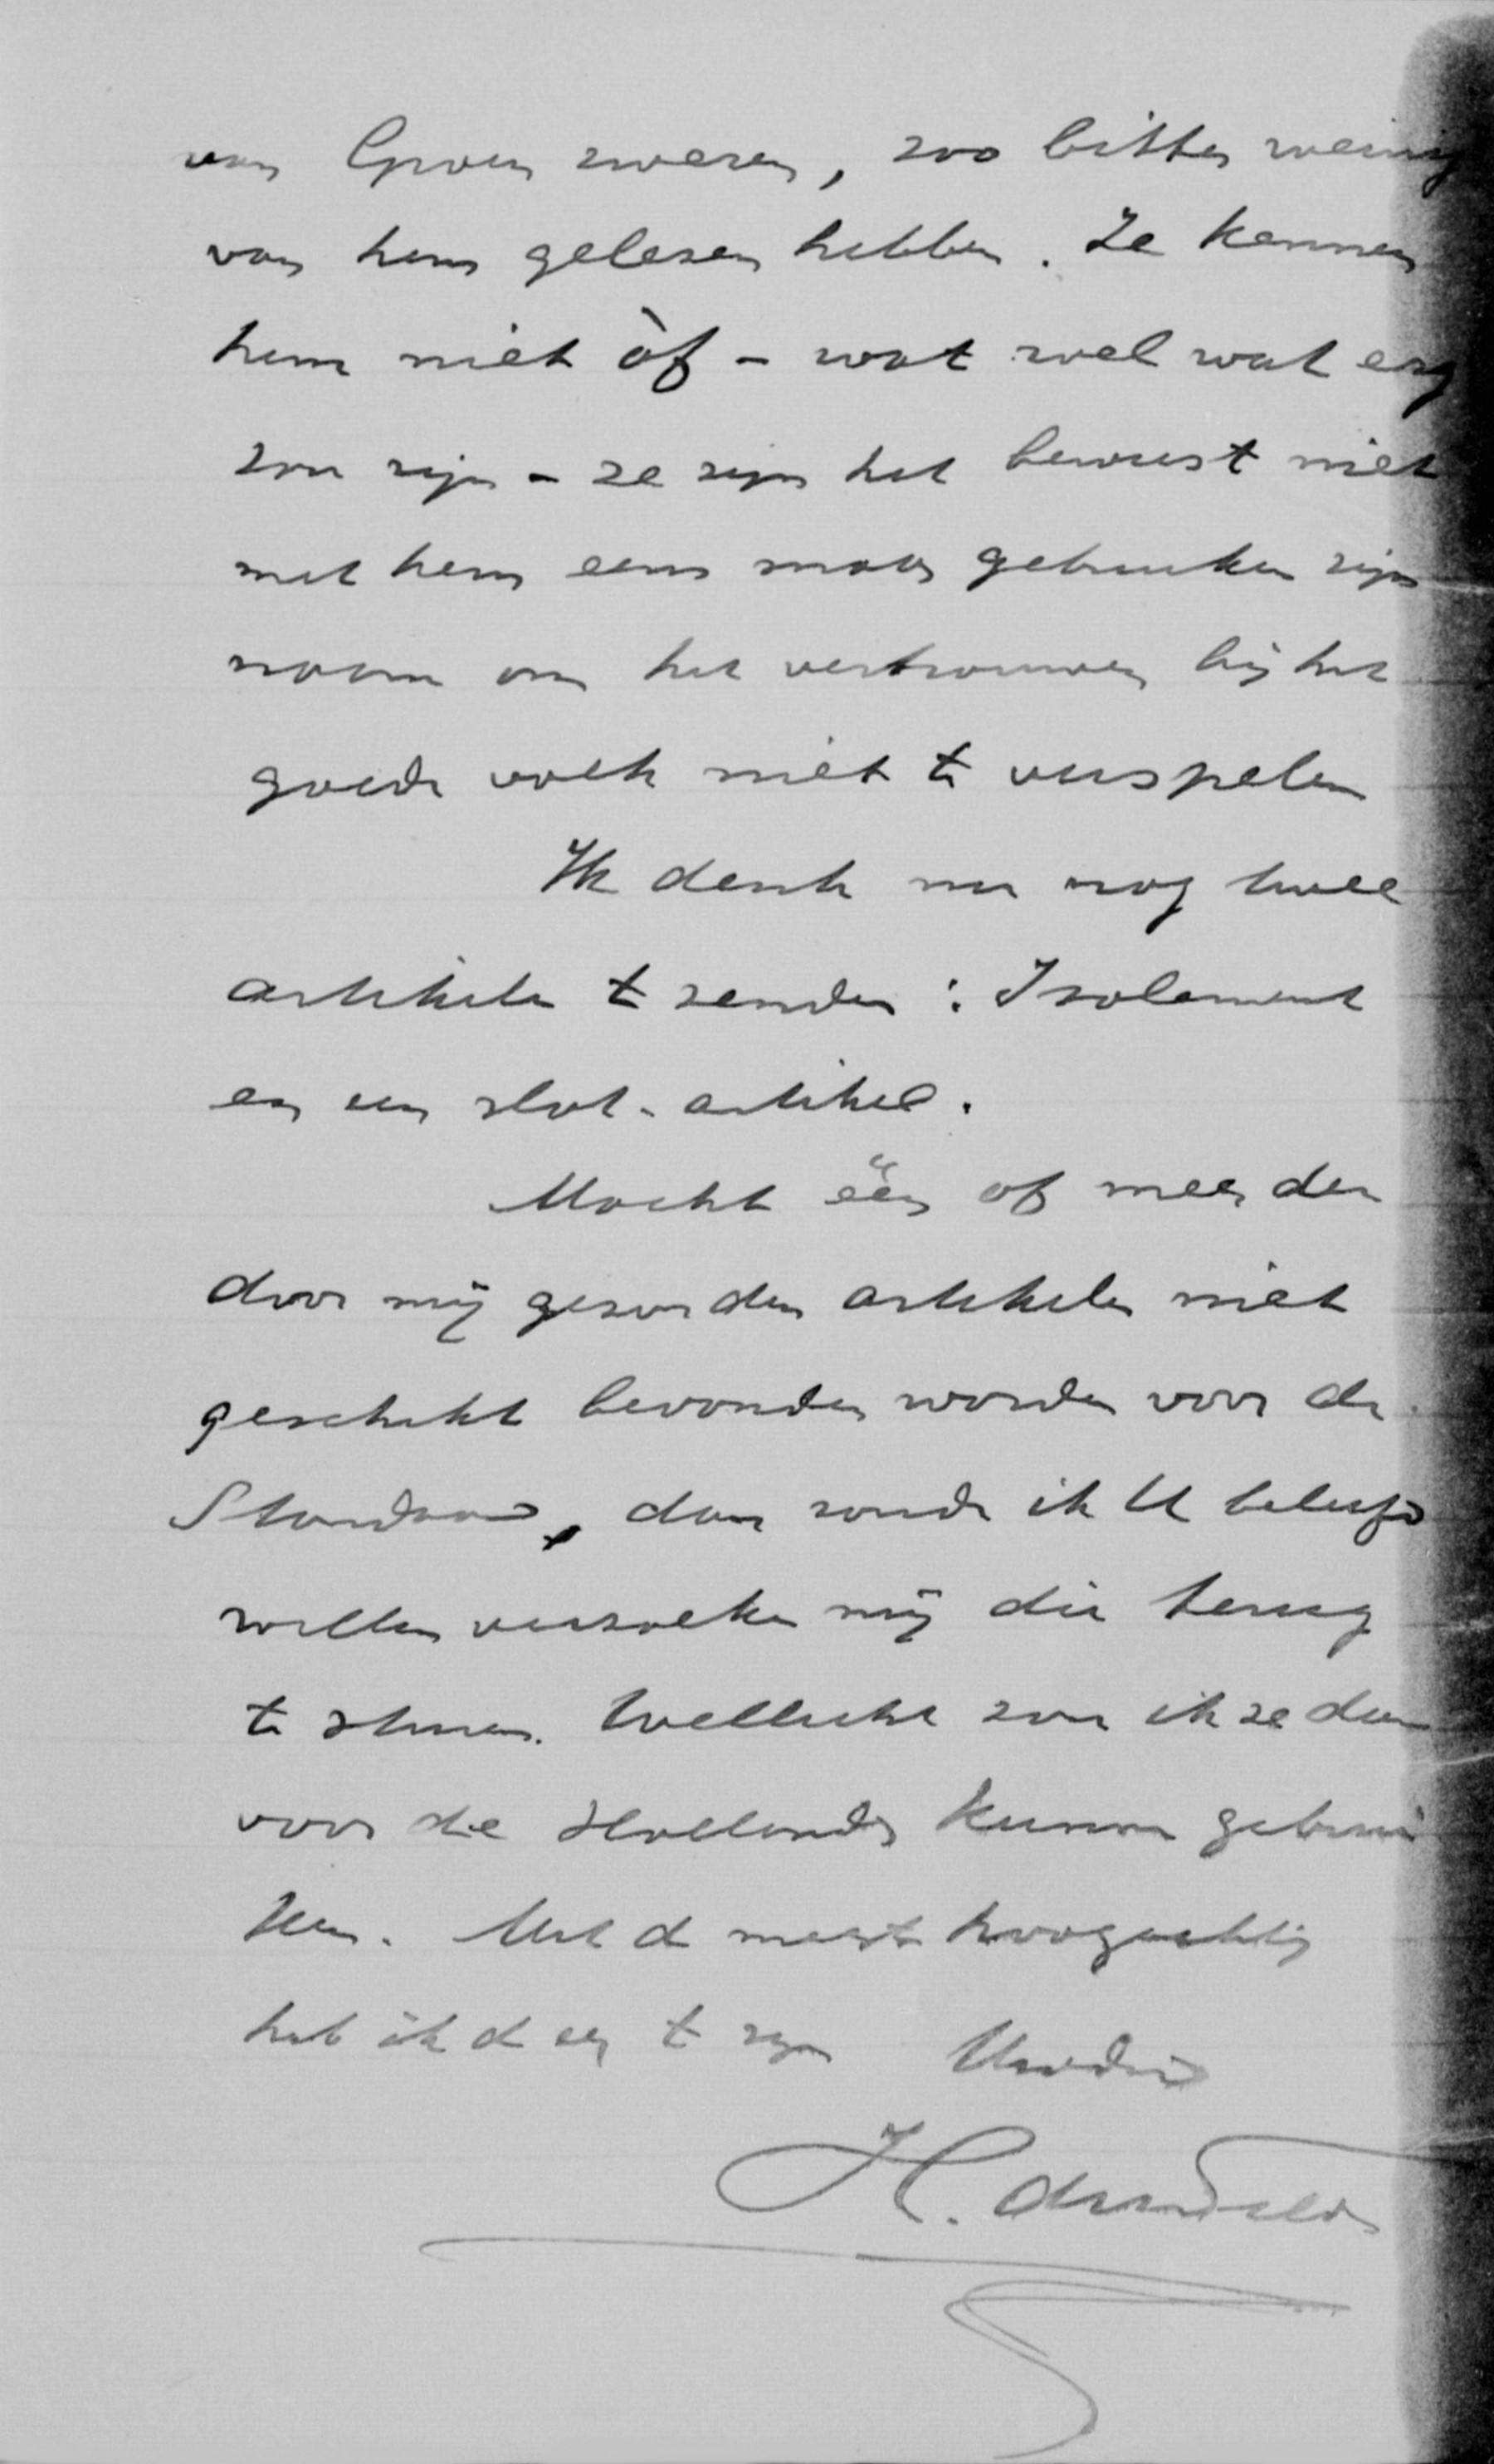 van Groen zweren, zoo bitter weinig
van hem gelezen hebben. Ze kennen
hem niet òf – wat wel wat erg
zou zijn – ze zijn het bewust niet
met hem eens maar gebruiken zijn
naam om het vertrouwen bij het
goede volk niet te verspelen
Ik denk nu nog twee
artikelen te zenden: Isolement
en een slot-artikel.
Mocht één of meer der
door mij gezonden artikelen niet
geschikt bevonden worden voor de
Standaard, dan zoude ik U beleefd
willen verzoeken mij die terug
te sturen. Wellicht zou ik ze dan
voor de Hollander kunnen gebrui
ken. Met de meeste hoogachting
heb ik de eer te zijn Uwdw
H.